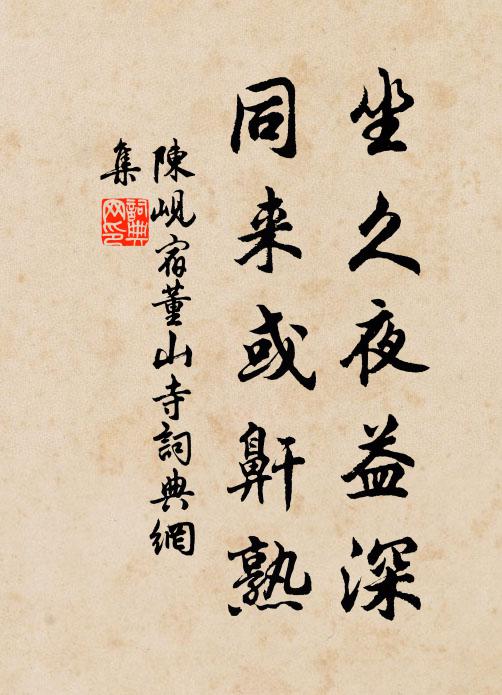 坐久夜益深
同来或鼾熟
陳峴宿董山寺詞典網
集
詞典
网印